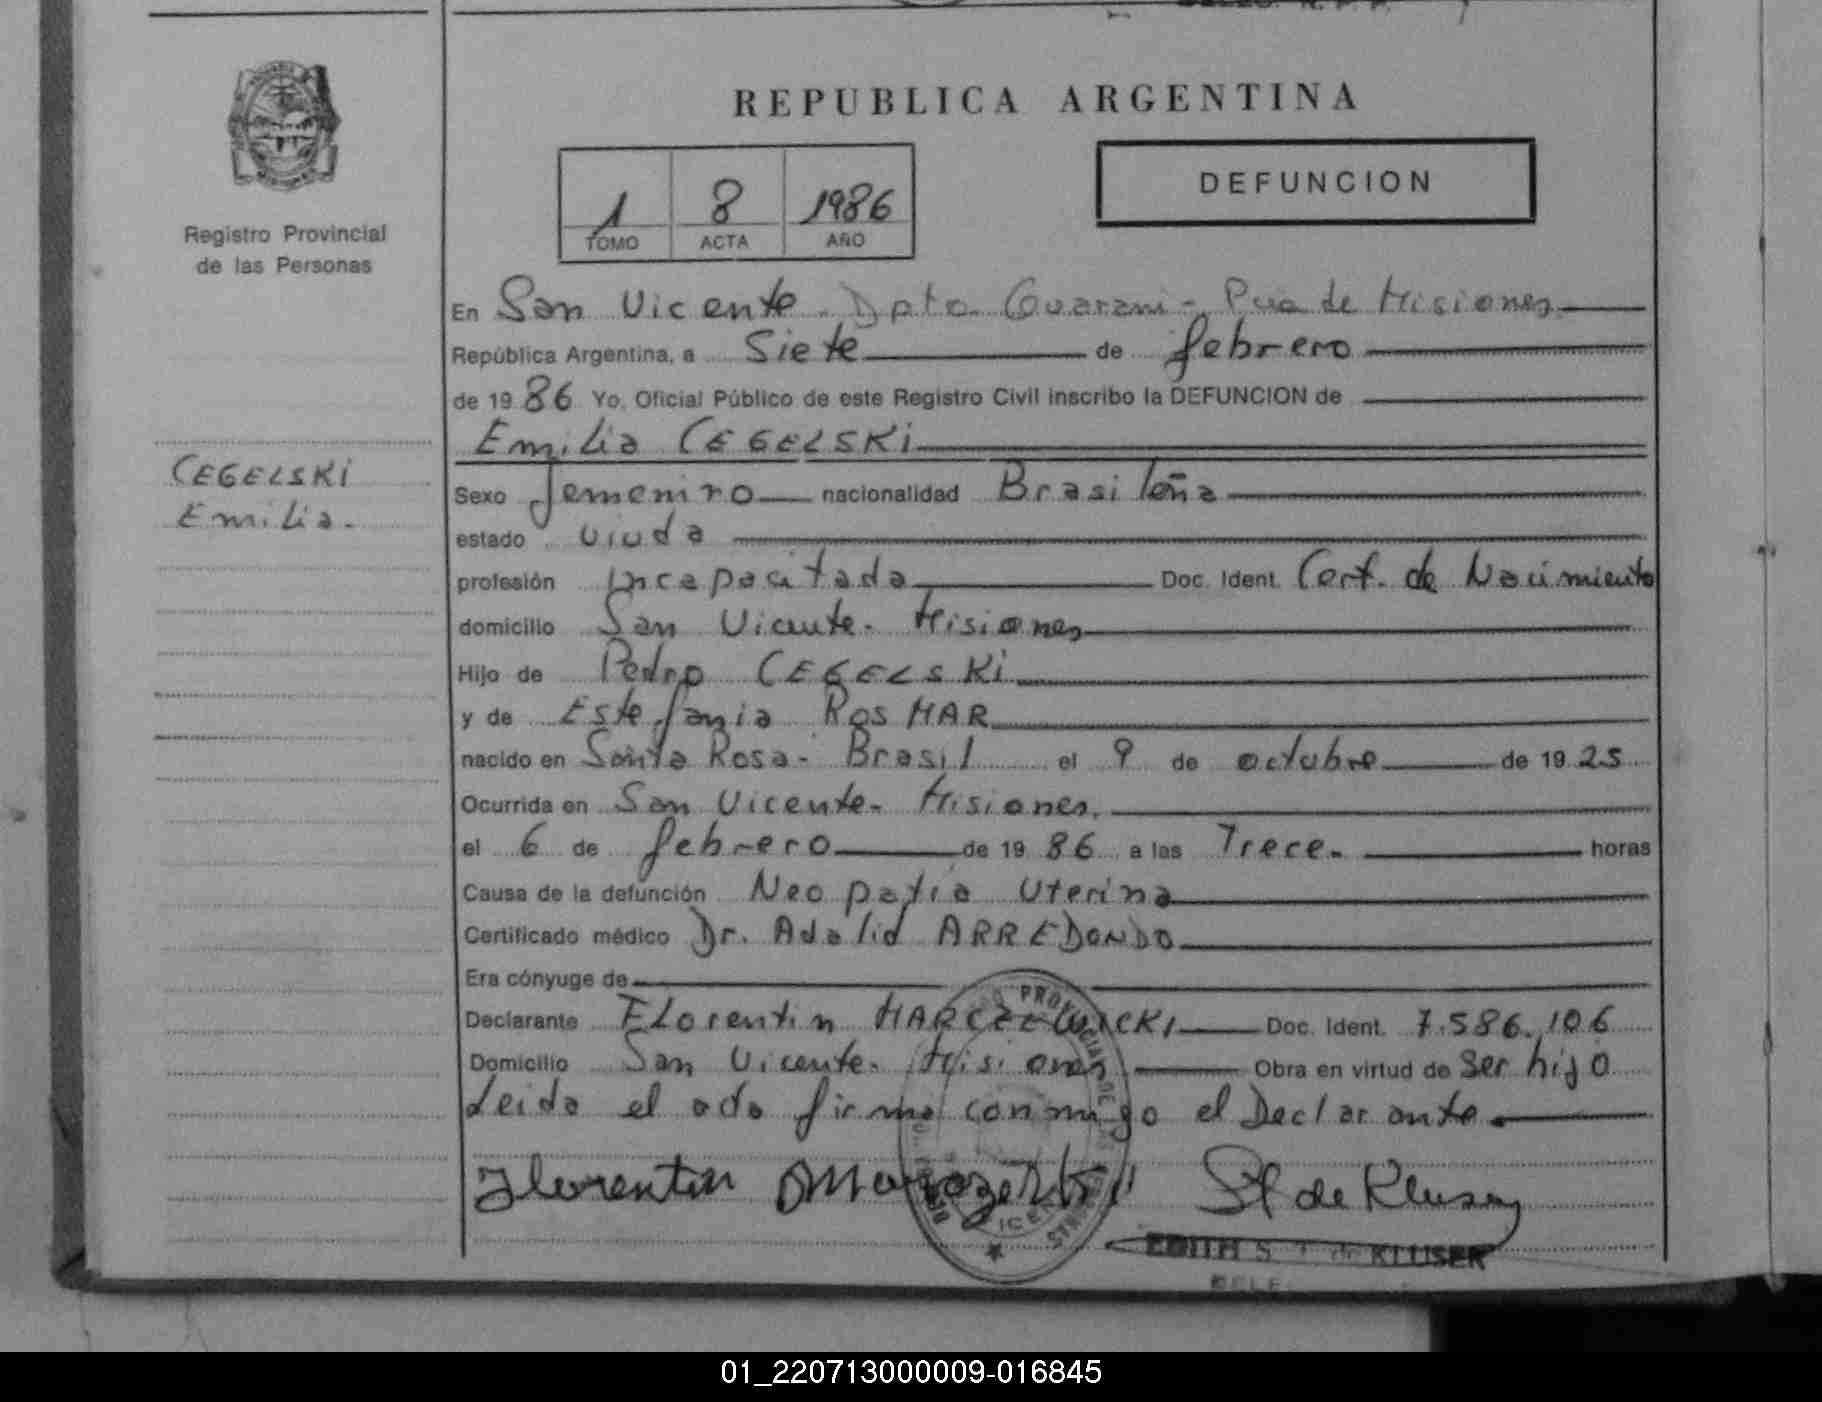 REPUBLICA ARGENTINA
DEFUNCION
1 8 1986
TOMO ACTA AÑO
Registro Provincial
de las Personas
CEGELSKI
Emilia.
En San Vicente. Dpto Guarani - Pcia de Misiones
República Argentina, a Siete de febrero
de 1986 Yo, Oficial Público de este Registro Civil inscribo la DEFUNCION de
Emilia CEGELSKi
Sexo femeniro nacionalidad Brasileña
estado viuda
profesión incapacitada Doc. Ident. Cert. de Nacimiento
domicilio San Vicente - Misiones
Hijo de Pedro CEGELSKi
y de Estefania ROSMAR
nacido en Santa Rosa - Brasil el 9 de octubre de 1925
Ocurrida en San Vicente - Misiones.
el 6 de febrero de 1986 a las Trece. horas
Causa de la defunción Neopatia Uterina
Certificado médico Dr. Adalid ARREDONDO
Era cónyuge de
Declarante Florentin MARCZEWSCKI Doc. Ident. 7.586.106
Domicilio San Vicente - Misiones Obra en virtud de Ser hijo
Leida el acta firma conmigo el Declarante.
Florentin
de Kluser
EDITH S. T. de KLUSER
DELE
01_220713000009-016845